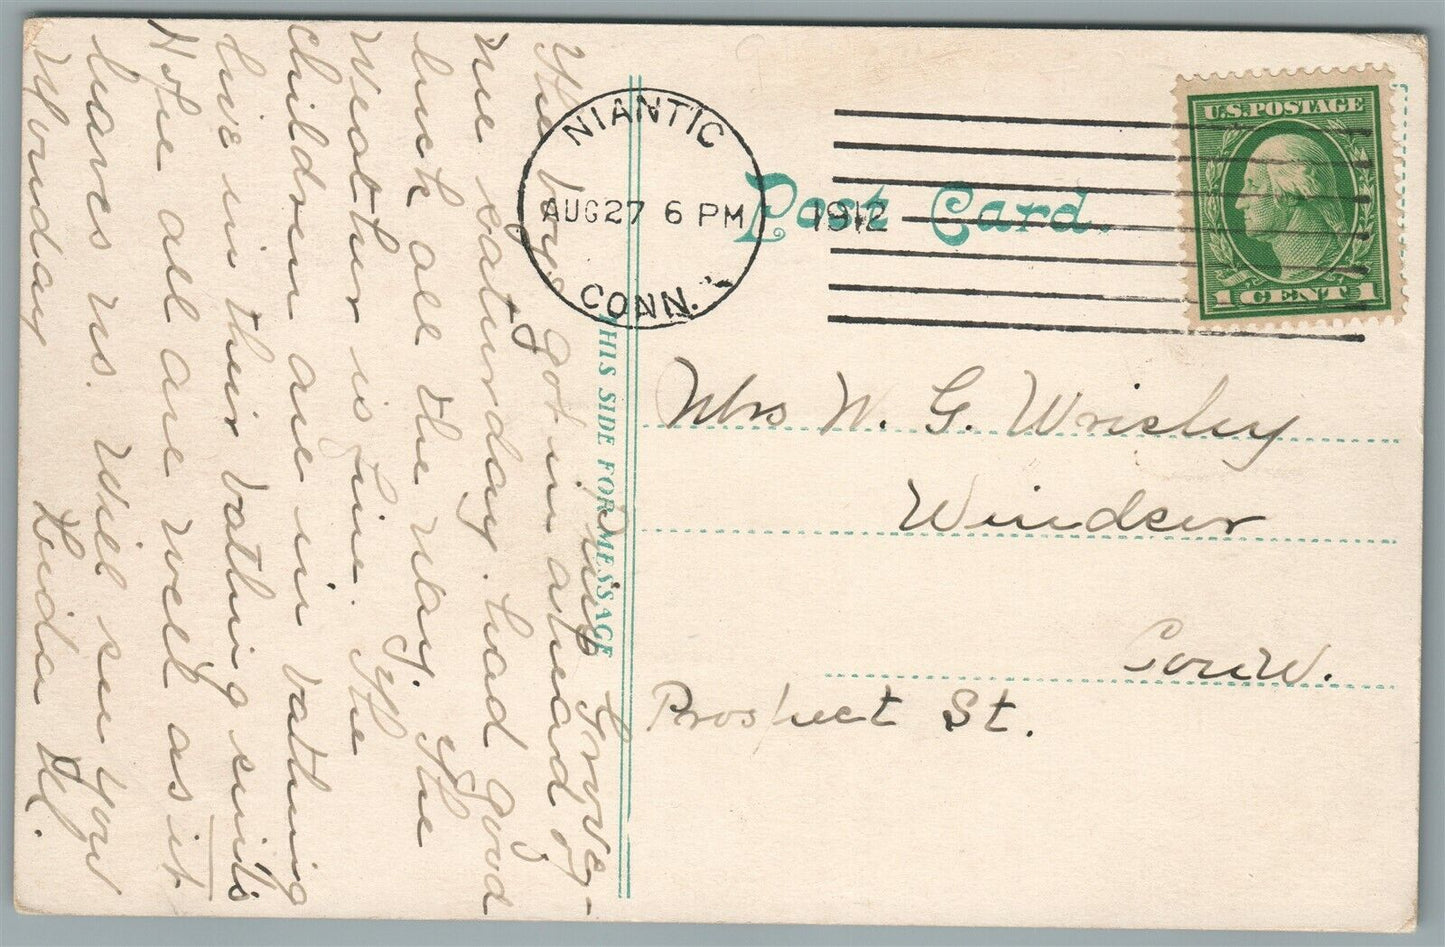 NIANTIC
AUG 27 6 PM 1912
CONN.
Post Card.
U.S. POSTAGE
1 CENT 1
THIS SIDE FOR MESSAGE
Mrs W. G. Wrisley
Windser
Conn.
Prospect St.
Pine Grove-
The boys got in ahead of
me saturday. had good
luck all the way. The
Weather is fine. The
children are in bathing
live in their bathing suits
Hope all are well as it
leaves us. Will see you
Monday Lida M.